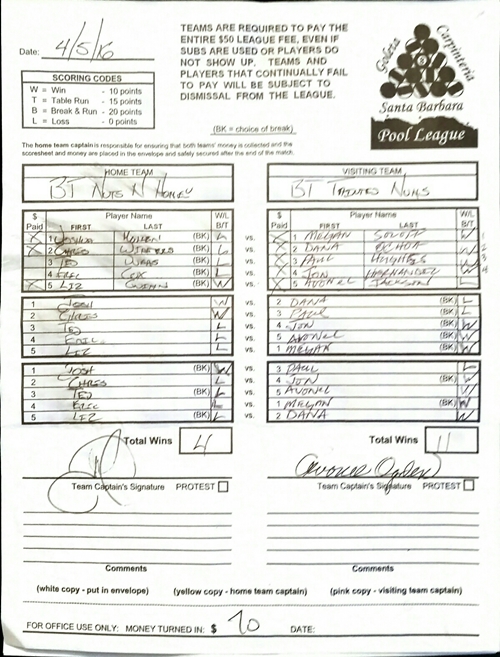 Date: 4/5/16
TEAMS ARE REQUIRED TO PAY THE
ENTIRE $50 LEAGUE FEE, EVEN IF
SUBS ARE USED OR PLAYERS DO
NOT SHOW UP. TEAMS AND
PLAYERS THAT CONTINUALLY FAIL
TO PAY WILL BE SUBJECT TO
DISMISSAL FROM THE LEAGUE.
(BK = choice of break)
SCORING CODES
W = Win - 10 points
T = Table Run - 15 points
B = Break & Run - 20 points
L = Loss - 0 points
Goleta Carpinteria
Santa Barbara
Pool League
The home team captain is responsible for ensuring that both teams' money is collected and the
scoresheet and money are placed in the envelope and safely secured after the end of the match.
HOME TEAM
BT Nuts N Honey
VISITING TEAM
BT Tainted Nuns
$ Paid Player Name FIRST LAST W/L B/T
$ Paid Player Name FIRST LAST W/L B/T
X 1 (BK) L vs. X 1 MEGYAN W
X 2 CHRIS (BK) L vs. X 2 DANA OCHOA W
3 TED (BK) L vs. X 3 PAUL HUGHES W
4 ERIC COX L vs. 4 JON HERNANDEZ W
X 5 LIZ W vs. X 5 AVONEL JACKSON L
1 JOSH W vs. 2 DANA (BK) L
2 CHRIS W vs. 3 PAUL (BK) L
3 TED L vs. 4 JON (BK) W
4 ERIC L vs. 5 AVONEL (BK) W
5 LIZ L vs. 1 MEGYAN (BK) W
1 JOSH (BK) W vs. 3 PAUL L
2 CHRIS L vs. 4 JON (BK) W
3 TED (BK) L vs. 5 AVONEL W
4 ERIC L vs. 1 MEGYAN (BK) W
5 LIZ (BK) L vs. 2 DANA W
Total Wins 4
Total Wins 11
Avonel Ogden
Team Captain's Signature PROTEST
Team Captain's Signature PROTEST
Comments
Comments
(white copy - put in envelope) (yellow copy - home team captain) (pink copy - visiting team captain)
FOR OFFICE USE ONLY: MONEY TURNED IN: $ 70 DATE: